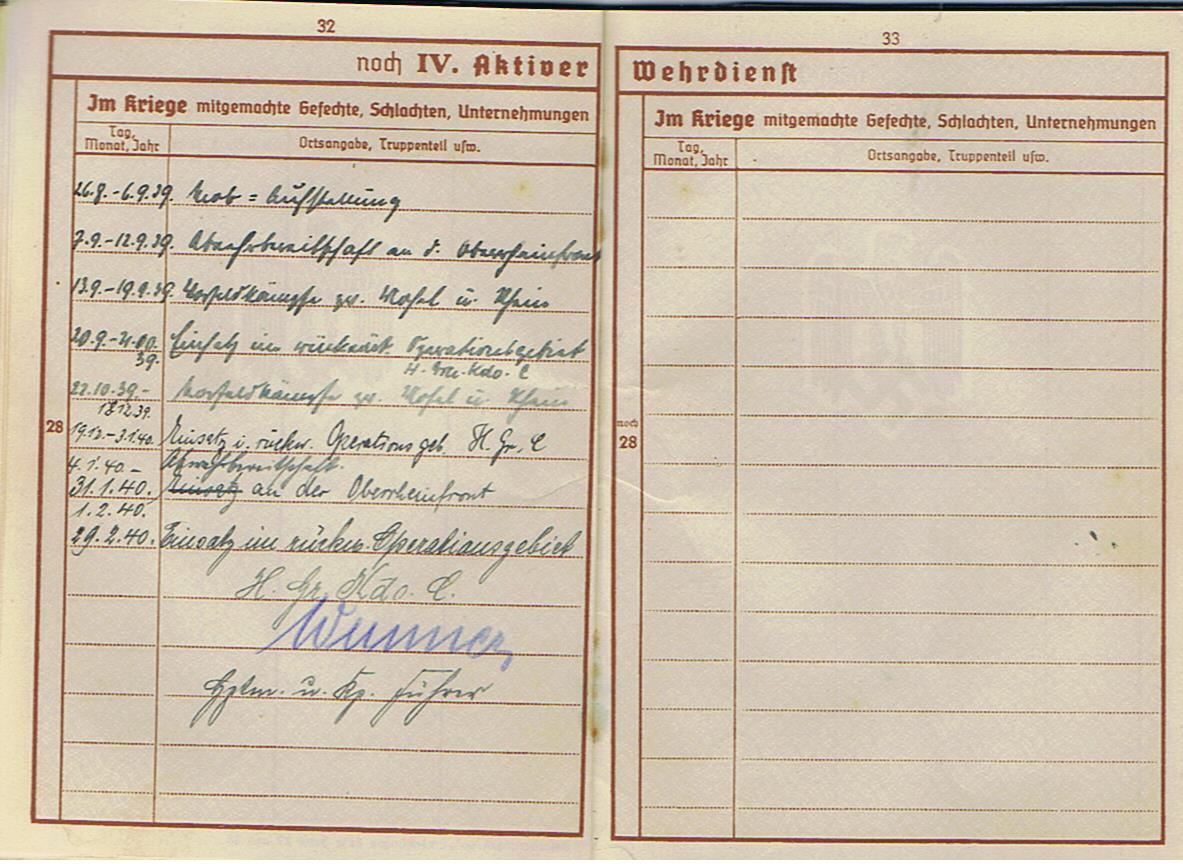 32
noch IV. Aktiver
Im Kriege mitgemachte Gefechte, Schlachten, Unternehmungen
Tag, Monat, Jahr
Ortsangabe, Truppenteil usw.
26.8.-6.9.39. Mob = Aufstellung
7.9.-12.9.39. Abwehrbereitschaft an d. Oberrheinfront
13.9.-19.9.39. Vorfeldkämpfe zw. Mosel u. Rhein
20.9.- 39. Einsatz im rückwärt. Operationsgebiet
H. Gru. Kdo. C
22.10.39.- Vorfeldkämpfe zw. Mosel u. Rhein
18.12.39.
28
19.12.-3.1.40. Einsatz i. rückw. Operationsgeb. H. Gr. C
4.1.40.- Abwehrbereitschaft.
31.1.40. Einsatz an der Oberrheinfront
1.2.40.
29.2.40. Einsatz im rückw. Operationsgebiet
H. Gr. Kdo. C.
Hptm. u. Kp. Führer
33
Wehrdienst
Im Kriege mitgemachte Gefechte, Schlachten, Unternehmungen
Tag, Monat, Jahr
Ortsangabe, Truppenteil usw.
noch
28